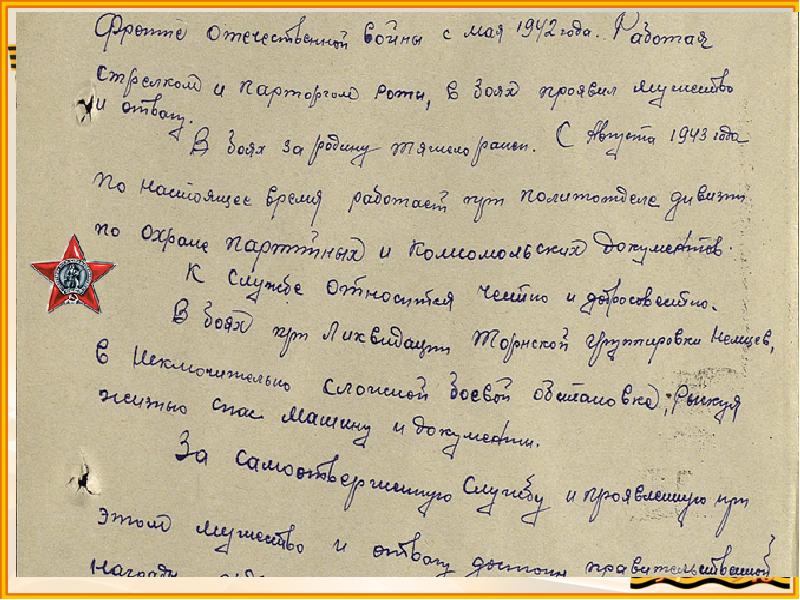 Фронте отечественной войны с мая 1942 года. Работая
стрелком и парторгом роты, в боях проявил мужество
и отвагу.
В боях за родину тяжело ранен. С Августа 1943 года
по настоящее время работает при политотделе дивизии
по охране партийных и комсомольских документов.
К службе относится честно и добросовестно.
В боях при ликвидации Торнской группировки немцев,
в исключительно сложной боевой обстановке, рискуя
жизнью спас машину и документы.
За самоотверженную службу и проявленную при
этом мужество и отвагу достоин правительственной
награды